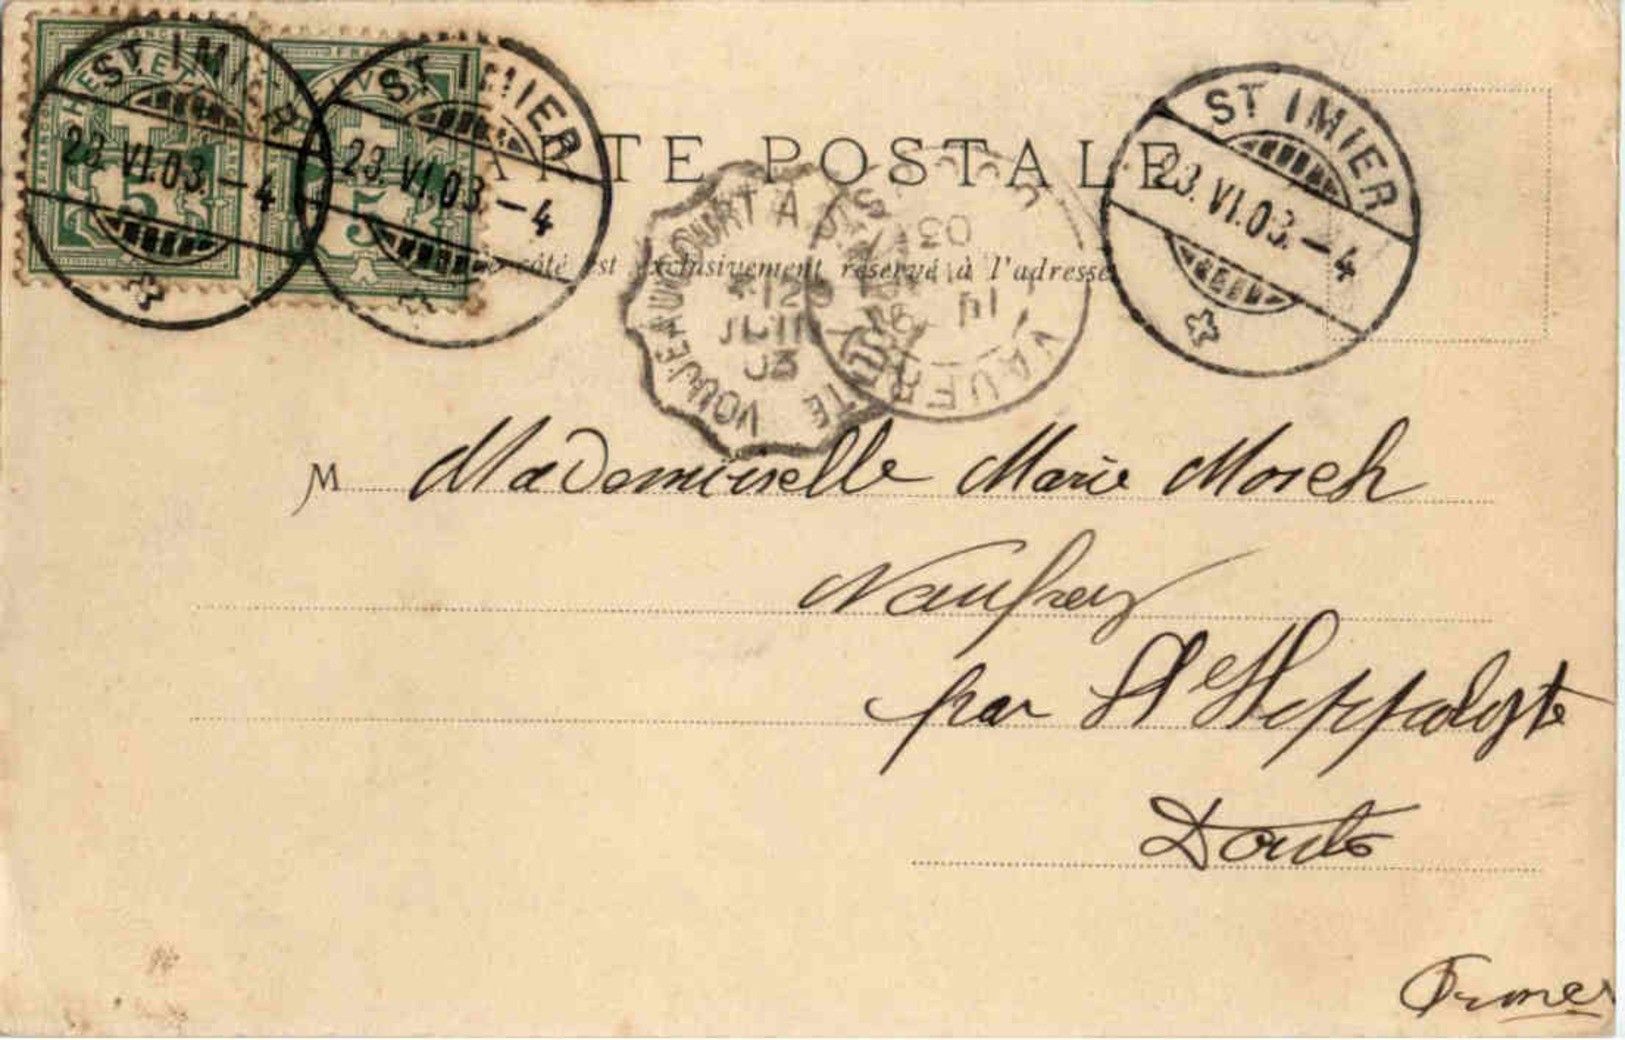 ST. IMIER
23.VI.03.–4
5
ST. IMIER
23.VI.03–4
5
ST. IMIER
23.VI.03.–4
CARTE POSTALE
Ce côté est exclusivement réservé à l'adresse
VOUJEAUCOURT A ST HIPPOLYTE
JUIN
03
VAUFREY
03
M Mademoiselle Marie Morel
Vaufrey
par St Hippolyte
Doubs
France